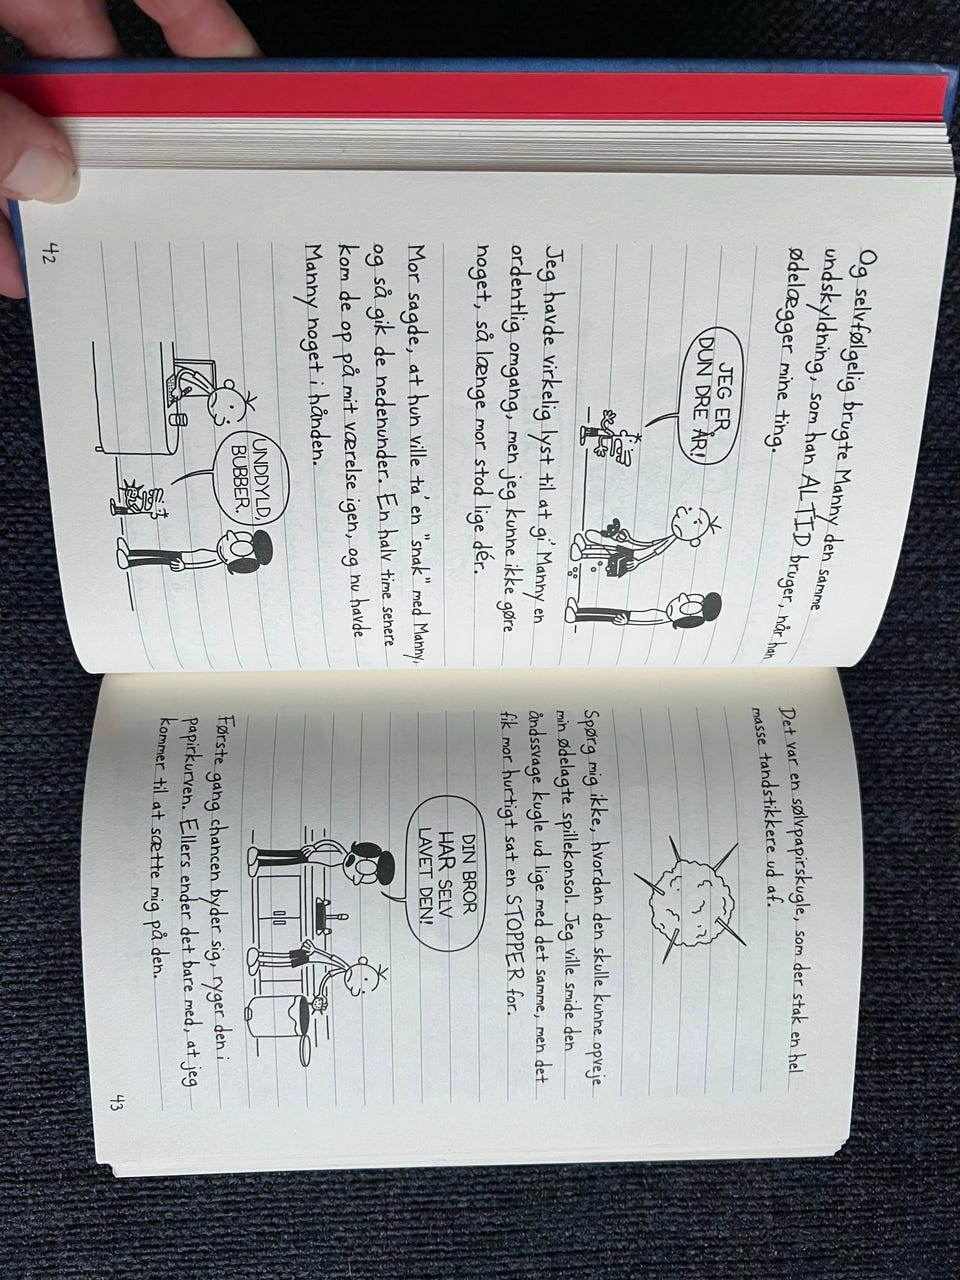 Og selvfølgelig brugte Manny den samme
undskyldning, som han ALTID bruger, når han
ødelægger mine ting.
JEG ER
DUN DRE ÅR!
Jeg havde virkelig lyst til at g' Manny en
ordentlig omgang, men jeg kunne ikke gøre
noget, så længe mor stod lige dér.
Mor sagde, at hun ville ta' en "snak" med Manny,
og så gik de nedenunder. En halv time senere
kom de op på mit værelse igen, og nu havde
Manny noget i hånden.
UNDDYLD,
BUBBER.
42
Det var en sølvpapirskugle, som der stak en hel
masse tandstikkere ud af.
Spørg mig ikke, hvordan den skulle kunne opveje
min ødelagte spillekonsol. Jeg ville smide den
åndssvage kugle ud lige med det samme, men det
fik mor hurtigt sat en STOPPER for.
DIN BROR
HAR SELV
LAVET DEN!
Første gang chancen byder sig, ryger den i
papirkurven. Ellers ender det bare med, at jeg
kommer til at sætte mig på den.
43